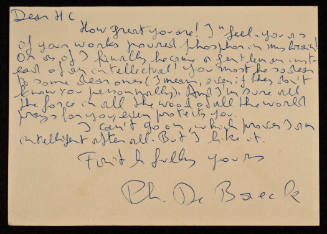 Dear H C
How great you are! I "feel-yours
of your works poured phosphor in my brain!
Or as if I finally become a gentleman inst-
ead of an intellectual! You must be so dear
to some dear ones (I mean, even if they don't
know you personally). And I'm sure all
the force in all the wood of all the world
press for you, even protects you.
I can't go on, which proves I am
intelligent after all. But I like it.
Faithfully yours
Ph. De Boeck